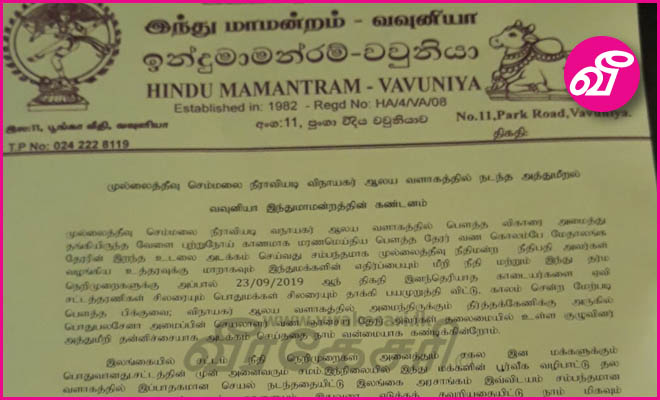 இந்து மாமன்றம் - வவுனியா
HINDU MAMANTRAM - VAVUNIYA
Established in: 1982 - Regd No: HA/4/VA/08
இல:11, பூங்கா வீதி, வவுனியா
අංශ:11,
No.11,Park Road,Vavuniya.
T.P No: 024 222 8119
திகதி:
வீ
முல்லைத்தீவு செம்மலை நீராவியடி விநாயகர் ஆலய வளாகத்தில் நடந்த அத்துமீறல்
வவுனியா இந்துமாமன்றத்தின் கண்டனம்
முல்லைத்தீவு செம்மலை நீராவியடி வநாயகர் ஆலய வளாகத்தில் பௌத்த விகாரை அமைத்து
தங்கியிருந்த வேளை புற்றுநோய் காணமாக மரணமெய்திய பௌத்த தேரர் வண கொலம்பே மேதாலங்க
தேரரின் இறந்த உடலை அடக்கம் செய்வது சம்பந்தமாக முல்லைத்தீவு நீதிமன்ற நீதிபதி அவர்கள்
வழங்கிய உத்தரவுக்கு மாறாகவும் இந்துமக்களின் எதிர்ப்பையும் மீறி நீதி மற்றும் இந்து தர்ம
நெறிமுறைகளுக்கு அப்பால் 23/09/2019 ஆந் திகதி இனந்தெரியாத காடையர்களை ஏவி
சட்டத்தரணிகள் சிலரையும் பொதுமக்கள் சிலரையும் தாக்கி பயமுறுத்தி விட்டு. காலம் சென்ற மேற்படி
பௌத்த பிக்குவை; விநாயகர் ஆலய வளாகத்தில் அமைந்திருக்கும் தீர்த்தக்கேணிக்கு அருகில்
பொதுபலசேனா அமைப்பின் செயலாளர் ஞானசார தேரர் அவர்கள் தலைமையில் உள்ள குழுவினர்
அத்துமீறி தன்னிச்சையாக அடக்கம் செய்ததை நாம் வன்மையாக கண்டிக்கின்றோம்.
இலங்கையில் சட்டம் நீதி நெறிமுறைகள் அனைத்தும் சகல இன மக்களுக்கும்
பொதுவானது.சட்டத்தின் முன் அனைவரும் சமம்.இந்நிலையில் இந்து மக்களின் பூர்வீக வழிபாட்டு தல
வளாகத்தில் இப்பாதகமான செயல் நடந்ததையிட்டு இலங்கை அரசாங்கம் இவ்விடயம் சம்பந்தமான